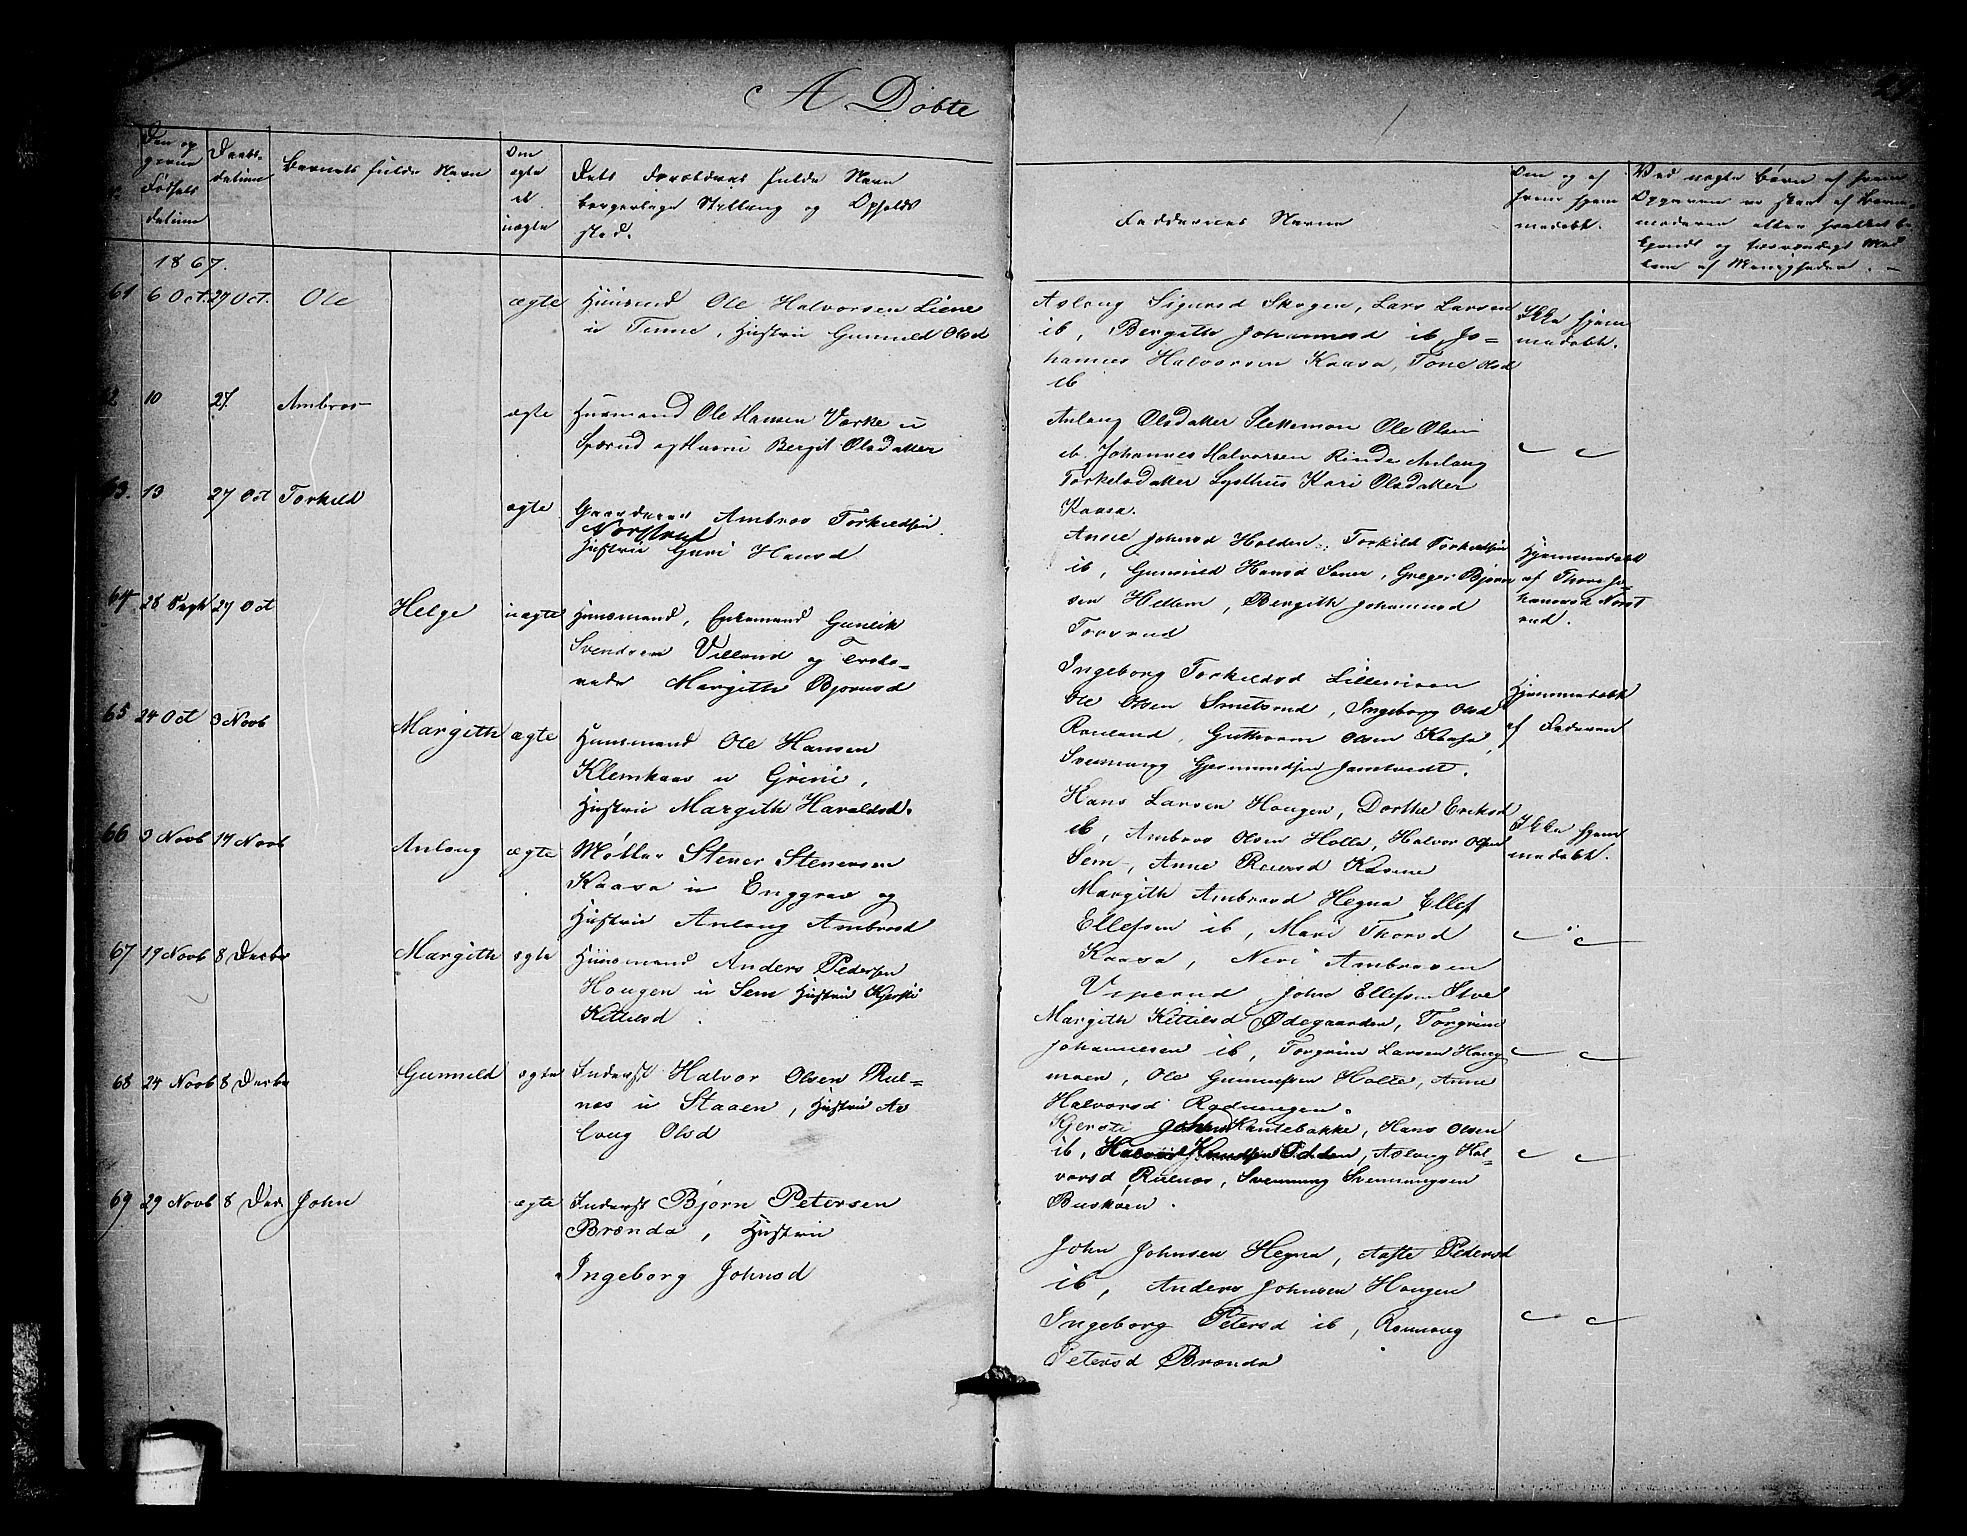 A Døbte
Barnets fulde Navn
Dets Forældres fulde Navn
borgerlige Stilling og Opholds
sted.
Faddernes Navne
1867.
61 6 Oct. 27 Oct. Ole ægte Huusmd Ole Halvorsen Liene
u Tinne, Hustru Gunnild Olsd
Aslaug Sigursd Skogen, Lars Larsen
ib, Bergith Johannesd ib, Jo-
hannes Halvorsen Kaasa, Tone Olsd
ib
Ikke hjem
medøbt.
10 27. Ambros ægte Huusmand Ole Hansen Værke u
og Hustru Bergit Olsdatter
Anlaug Olsdatter Slettemoen Ole Olsen
ib. Johannes Halvorsen Rinde Anlaug
Torkelsdatter Lysthus Kari Olsdatter
Kaasa.
63. 13 27 Oct Torkild ægte Gaardmand Ambros Torkildsen
Nordstrud
Hustru Guri Hansd
Anne Johnsd Holden, Torkild Torkildsen
ib, Gunnild Hansd Sauer, Greger Bjørn
sen Hellem, Bergith Johannesd
Torsrud
Hjemmedøbt
af Thore Jo-
hannesd Norst
rud.
64 28 Septb 27 Oct Helge uægte Huusmand, Enkemand Gunleik
Svendsen Villand og
Margith Bjørnsd
Ingeborg Torkildsd Lillemoen
Ole Olsen Smetsrud, Ingeborg Olsd
Rauland, Guttorm Olsen Kaasa,
Svennung Gjermundsen Jamtvedt.
Hjemmedøbt
af Faderen
65 24 Oct 3 Novb Margith ægte Huusmand Ole Hansen
Klemkaas u Grini,
Hustru Margith Haraldsd.
Hans Larsen Haugen, Dorthe Eriksd
ib, Ambros Olsen Holte, Halvor Olsen
Sem, Anne Reiersd Kaasene
Ikke hjem
medøbt.
66 3 Novb 17 Novb Anlaug ægte Møller Stener Stenersen
Kaasa u Enggrav og
Hustru Anlaug Ambrosd
Margith Ambrosd Hegna Ellef
Ellefsen ib, Mari Thorsd
Kaasa, Neri Ambrosen
Viperud, John Ellefsen Stve
67 17 Novb 8 Decbr Margith ægte Huusmand Anders Pedersen
Haugen u Sem Hustru Kjersti
Kittilsd
Margith Kittilsd Ødegaarden, Torgrim
Johannesen ib, Torgrim Larsen Haug
moen, Ole Gunnulfsen Holte, Anne
Halvorsd Rodningen.
68 24 Novb 8 Decbr Gunnild ægte Inderst Halvor Olsen Rul-
nes u Staaen, Hustru As
laug Olsd
Kjersti Hans Olsen
ib, Aslaug Hal-
vorsd Rulnes, Svennung Svennungsen
Buskåen.
69 29 Novb 8 Dec John ægte Inderst Bjørn Petersen
Brenda, Hustru
Ingeborg Johnsd
John Johnsen Hegna, Aaste Pedersd
ib, Anders Johnsen Haugen
Ingeborg Petersd ib, Rannaug
Petersd Brenda